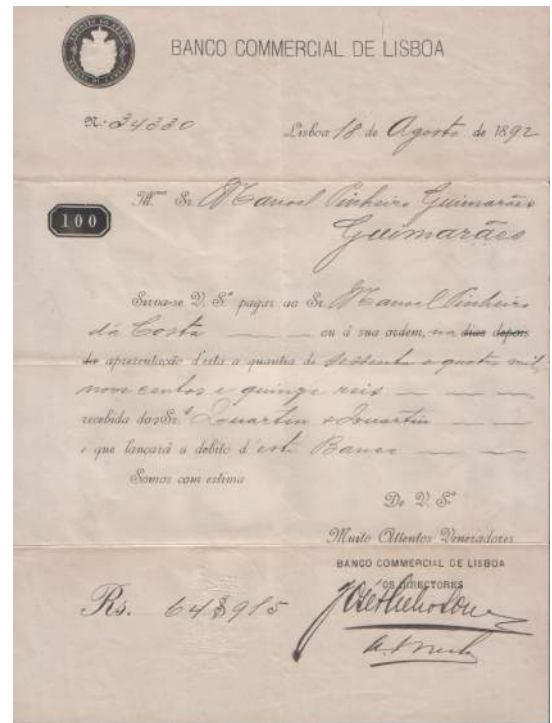 BANCO COMMERCIAL DE LISBOA
Nº 34330
Lisboa 18 de Agosto de 1892
100
Illmo Sr. Manoel Pinheiro Guimarães
Guimarães
Sirva-se V. Sª pagar ao Sr. Manoel Pinheiro
da Costa ou á sua ordem, na dias depois
de apresentação d'esta a quantia de sessenta e quatro mil
nove centos e quinze reis
recebida dos Srs
e que lançará a debito d'este Banco
Somos com estima
De V. Sª
Muito Attentos Veneradores
BANCO COMMERCIAL DE LISBOA
OS DIRECTORES
Rs. 64$915